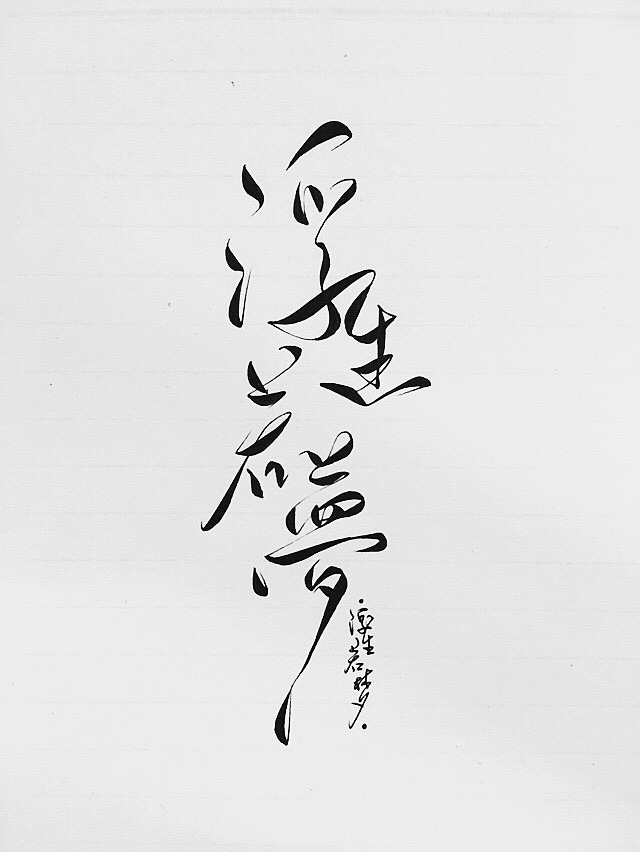 浮生若夢
浮生若梦